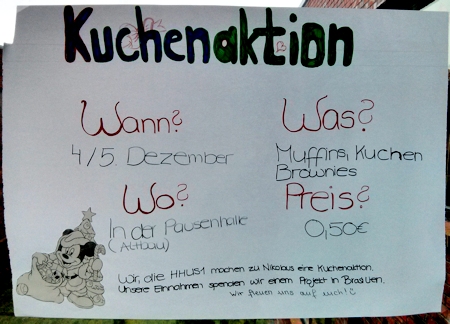 Kuchenaktion
Wann?
4/5. Dezember
Was?
Muffins, Kuchen
Brownies
Wo?
In der Pausenhalle
(Altbau)
Preis?
0,50€
Wir, die HHUS1 machen zu Nikolaus eine Kuchenaktion.
Unsere Einnahmen spenden wir einem Projekt in Brasilien.
Wir freuen uns auf euch!